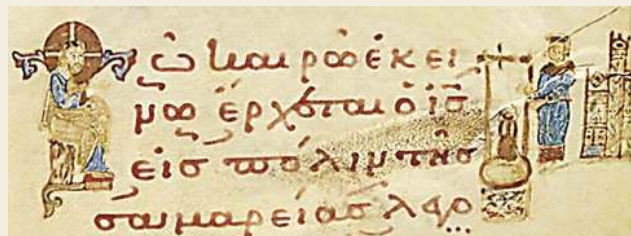 Τῶ καιρῶ ἐκεί
νω ἔρχεται ὁ ἰ̅σ̅
εἰσ πόλιν τῆσ
σαμαρείασ λεγο